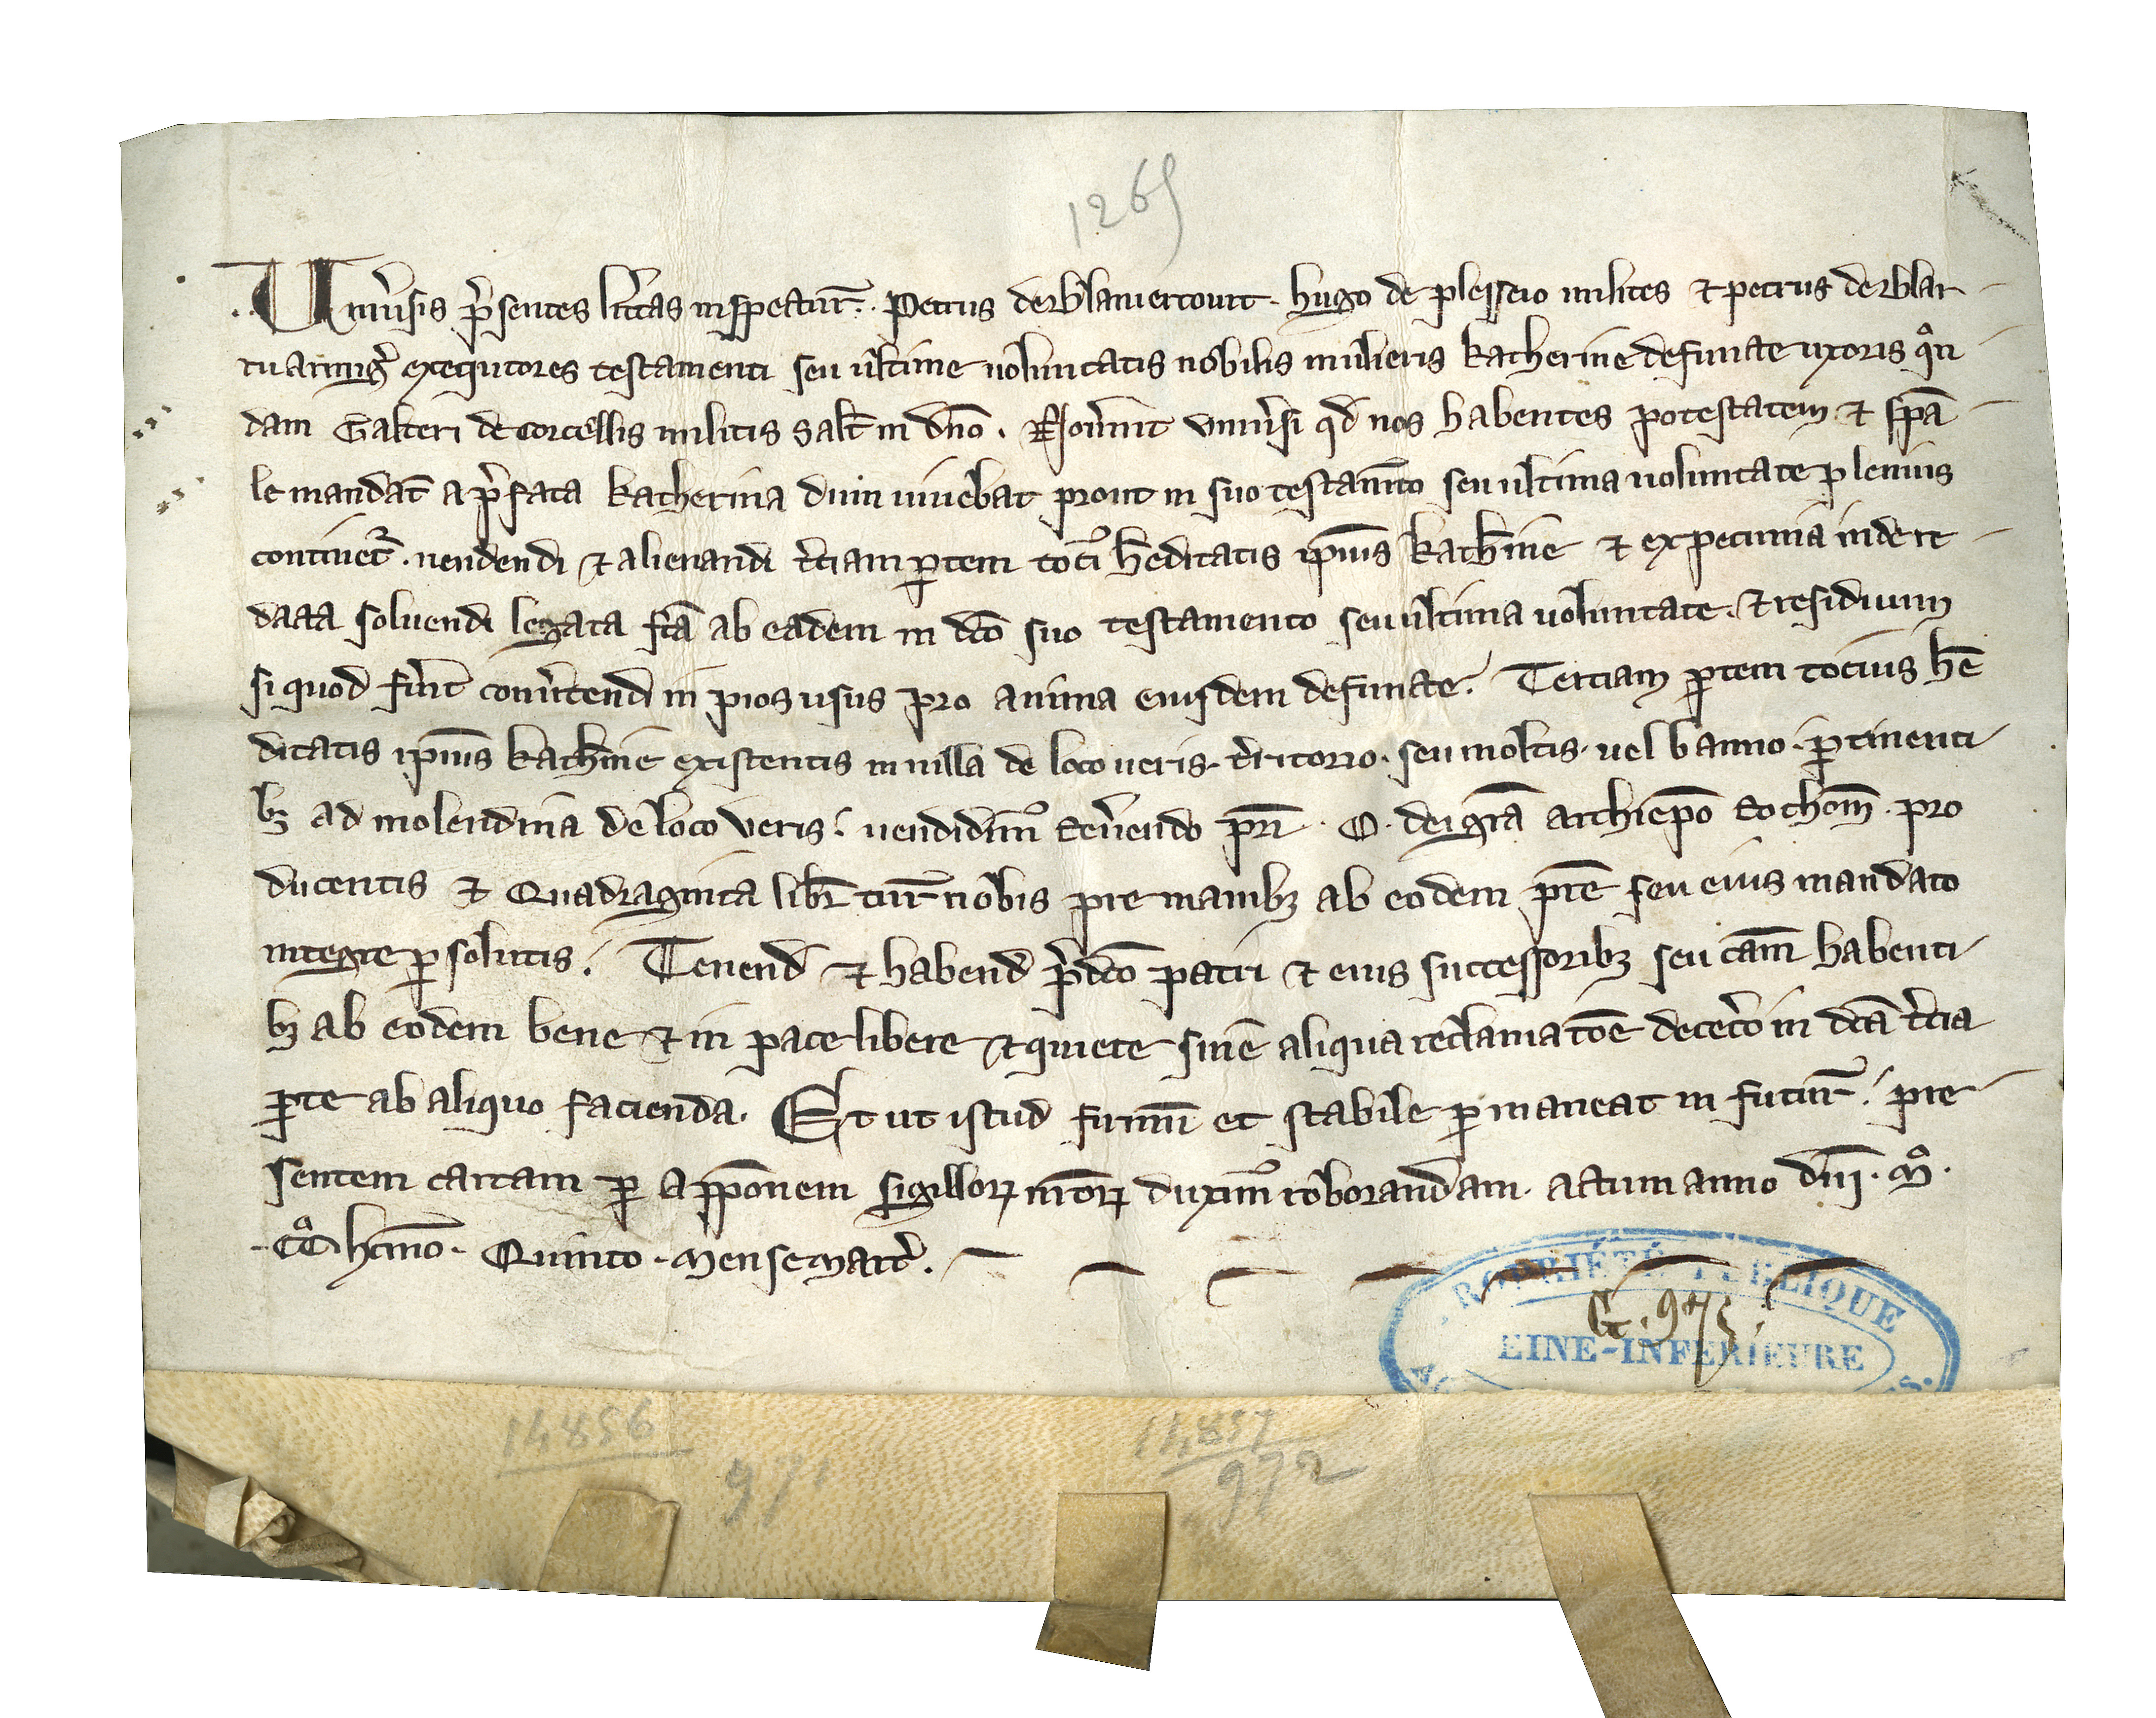 1265
Uniu̾sis p̾sentes litt̾as inspectur̄. Petrus de Blaniercourt. hugo de plesseio milites ⁊ petrus de Blar
ru armig̾ exequtores testamenti seu ultime uoluntatis nobilis mulieris katherine defuncte uxoris qͦn
dam Galteri de Corcellis militis Salt̄ in dn̄o. Nou̾int vniu̾si qd̄ nos habentes potestatem ⁊ sp̄a
le mandat̄ a p̾fata katherina dum uiuebat prout in suo testam̄to seu ultima uoluntate plenius
continet᷑. uendendi ⁊ alienandi t̾ciam ꝑtem toti᷒ h̄editatis ip̄ius kath̾ine ⁊ ex pecunia inde re
dacta soluendi legata fc̄a ab eadem in dc̄o suo testamento seu ultima uoluntate. ⁊ residuum
si quod fu̾it conu̾tendi in pios usus pro anima eiusdem defuncte. Tertiam ꝑtem tocius h̄e
ditatis ip̄ius kath̾ine existentis in uilla de loco ueris. t̾ritorio. seu moltis. uel banno. ꝑtinenti
bꝫ ad molendina de loco veris. uendidim᷒ Reu̾endo pr̄i. O. dei gr̄a archiep̄o Rothom̄. pro
ducentis ⁊ Quadraginta libr̄ tur̄ nobis pre manibꝫ ab eodem pr̄e seu eius mandato
integre ꝑsolutis. Tenend̄ ⁊ habend̄ p̾dc̄o patri ⁊ eius successoribꝫ seu cām habenti
bꝫ ab eodem bene ⁊ in pace libere ⁊ quiete sine aliqua reclamatōe decet̾o in dc̄a t̾cia
ꝑte ab aliquo facienda. Et ut istud firmū et stabile ꝑmaneat in futur̄. pre
sentem cartam ꝑ appōnem sigilloꝝ nr̄oꝝ duxim᷒ roborandam. actum anno dn̄i. Mͦ.
CCͦ Lxmo. Quinto. Mense Marc̾.
PROPRIÉTÉ PUBLIQUE
G. 973
EINE-INFERIEURE
14856
971
14857
972